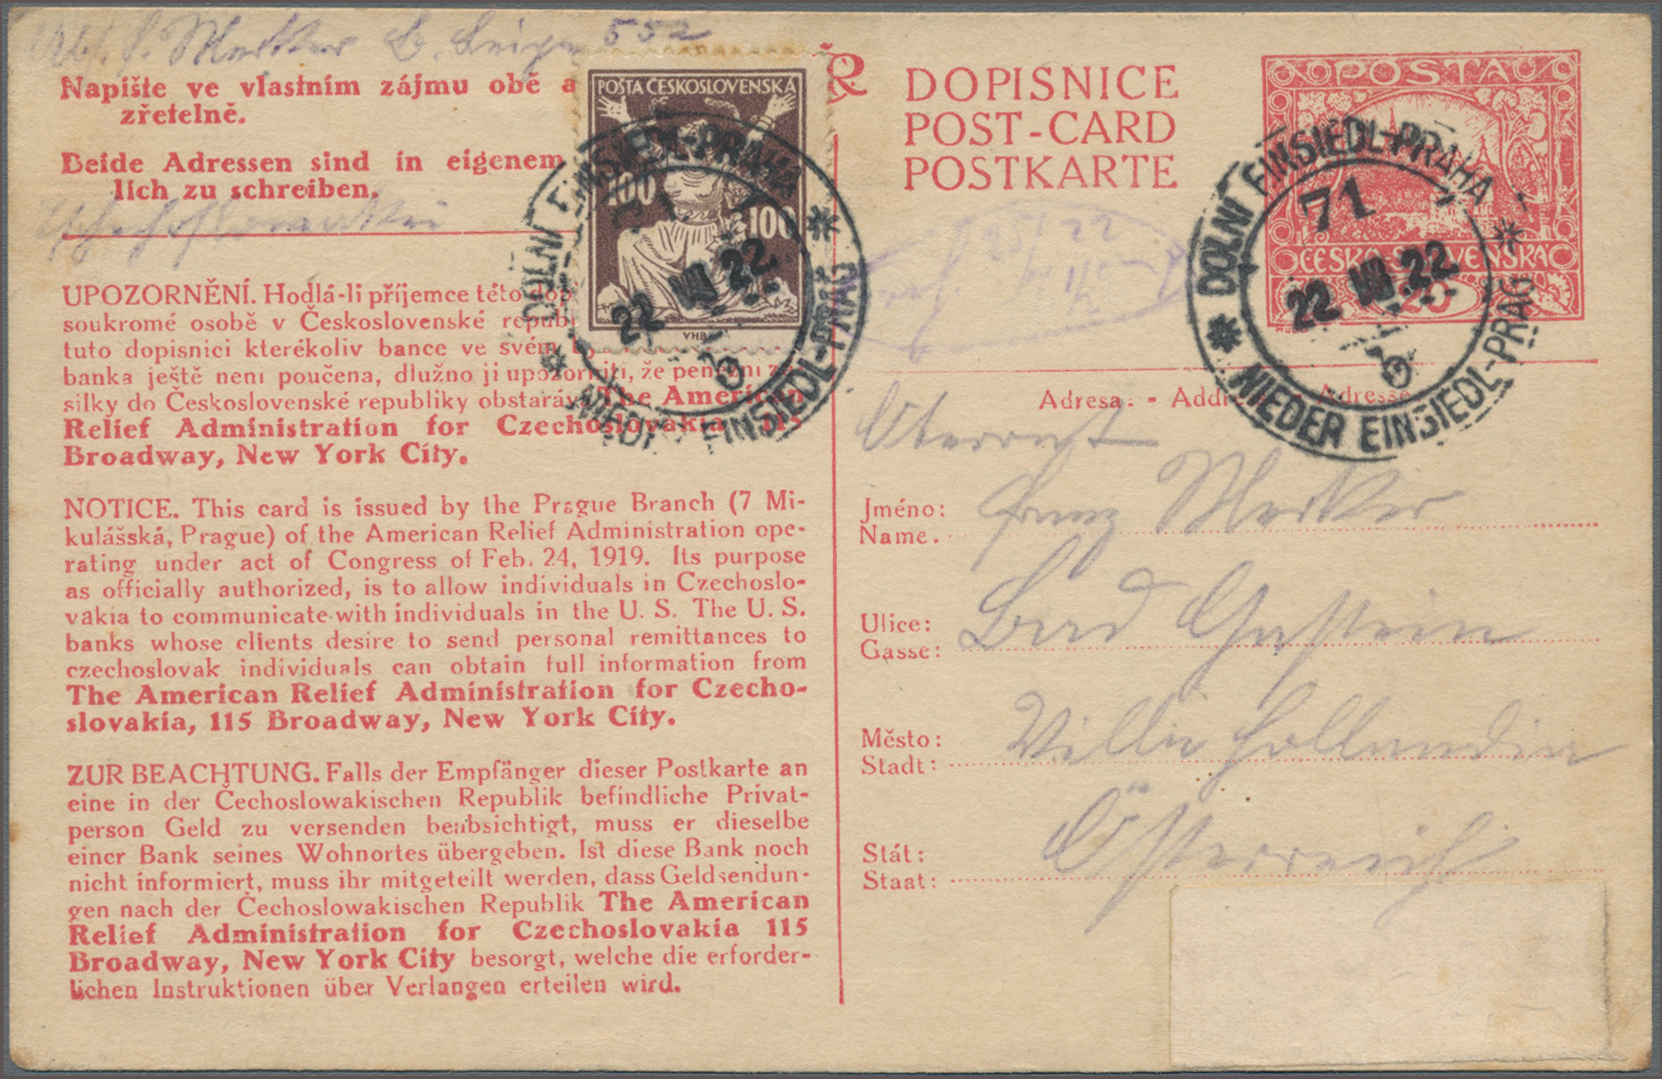 552
Napište ve vlastním zájmu obě a
zřetelně.
Beide Adressen sind in eigenem
lich zu schreiben.
Tschechoslowakei
UPOZORNĚNÍ. Hodlá-li příjemce této dop
soukromé osobě v Československé republ
tuto dopisnici kterékoliv bance ve svém
banka ještě není poučena, dlužno ji upozorniti, že peněžní zá-
silky do Československé republiky obstarává The American
Relief Administration for Czechoslovakia 115
Broadway, New York City.
NOTICE. This card is issued by the Prague Branch (7 Mi-
kulášská, Prague) of the American Relief Administration ope-
rating under act of Congress of Feb. 24, 1919. Its purpose
as officially authorized, is to allow individuals in Czechoslo-
vakia to communicate with individuals in the U. S. The U. S.
banks whose clients desire to send personal remittances to
czechoslovak individuals can obtain full information from
The American Relief Administration for Czecho-
slovakia, 115 Broadway, New York City.
ZUR BEACHTUNG. Falls der Empfänger dieser Postkarte an
eine in der Čechoslowakischen Republik befindliche Privat-
person Geld zu versenden beabsichtigt, muss er dieselbe
einer Bank seines Wohnortes übergeben. Ist diese Bank noch
nicht informiert, muss ihr mitgeteilt werden, dass Geldsendun-
gen nach der Čechoslowakischen Republik The American
Relief Administration for Czechoslovakia 115
Broadway, New York City besorgt, welche die erforder-
lichen Instruktionen über Verlangen erteilen wird.
POŠTA ČESKOSLOVENSKÁ
100
100
VHB
DOLNÍ EINSIEDL-PRAHA
22 VII 22
6
NIEDER EINSIEDL-PRAG
DOPISNICE
POST-CARD
POSTKARTE
POŠTA
ČESKO-SLOVENSKÁ
DOLNÍ EINSIEDL-PRAHA
71
22 VII 22
6
NIEDER EINSIEDL-PRAG
Adresa: - Address Adresse
Oberamt
Jméno:
Name.
Franz Merker
Ulice:
Gasse:
Bad Gastein
Město:
Stadt:
Villa Hollandia
Stát:
Staat:
Österreich